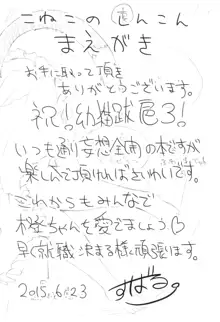 こねこのしんこん
まえがき
お手に取って頂き
ありがとうございます。
祝!幼猫跋扈3!
いつも通り妄想全開の本ですが
楽しんで頂ければさいわいです。
これからもみんなで
ちゃんを愛でましょう♡
早く就職決まる様に頑張ります。
2015.6.23
すばる。